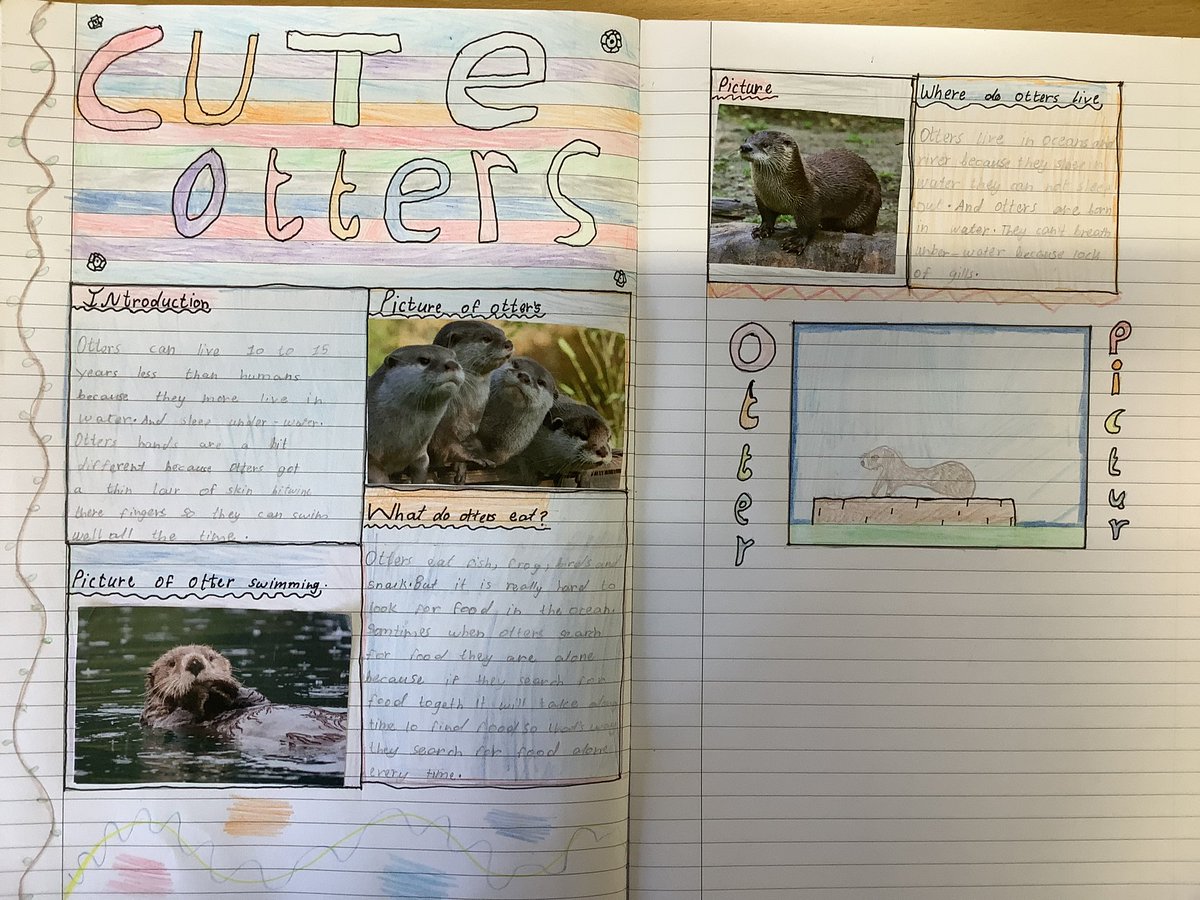 CUTE
otters
Introduction
Otters can live 10 to 15
years less than humans
because they more live in
water. And sleep under-water.
Otters hands are a bit
different because otters got
a thin lair of skin bitwine
there fingers so they can swim
well all the time.
Picture of otter's
What do otters eat?
Otters eat fish, frog, bird's and
snack. But it is really hard to
look for food in the ocean.
Somtimes when otters search
for food they are alone
because if they search for
food togeth it will take alone
time to find food so that's way
they search for food alone
every time.
Picture of Otter swimming.
Picture
Where do otters live
Otters live in oceans and
river because they sleep in
water they can not sleep
out. And otters are born
in water. They can't breath
unber-water because lack
of gills.
Otter
Pictur